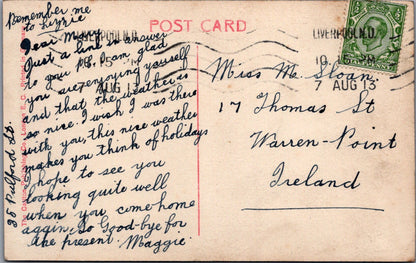 Remember me
to Lizzie
POST CARD
LIVERPOOL.N.D.
7 AUG 13
LIVERPOOL.N.D.
7 AUG 13
Dear Mary
Just a line in answer
to your P.C. am glad
you are enjoying yourself
and that the weather is
so nice. I wish I was there
with you, this nice weather
makes you think of holidays
I hope to see you
looking quite well
when you come home
again, so Good-bye for
the present. Maggie
Miss M. Sloan.
17 Thomas St
Warren-Point
Ireland